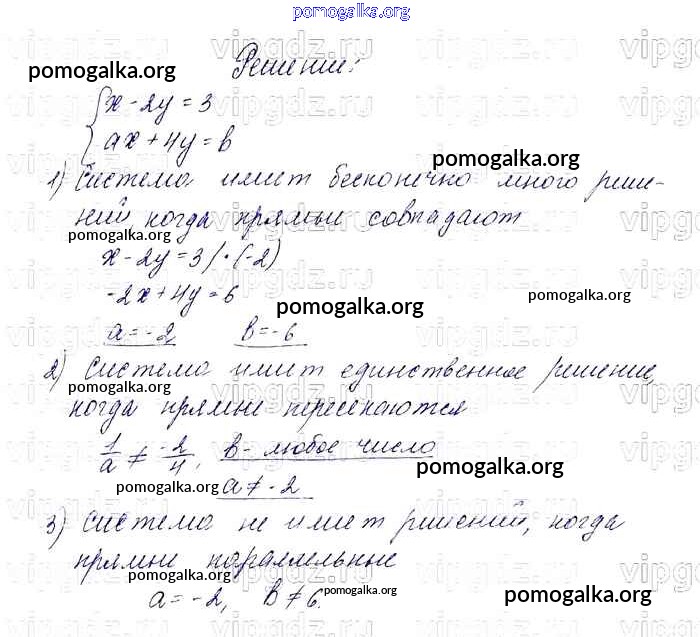 pomogalka.org
Решение:
pomogalka.org
x - 2y = 3
ax + 4y = b
pomogalka.org
1) Система имеит бесконечно много реше-
ний когда прямые совпадают
pomogalka.org
x - 2y = 3 / · (-2)
-2x + 4y = 6
pomogalka.org
pomogalka.org
a = -2 b = -6
2) Система имеит единственное решение,
pomogalka.org
когда прямые пересекаются
1/a ≠ -2/4, b - любое число
pomogalka.org
pomogalka.org
a ≠ -2
3) Система не имеит решений, когда
прямые параллельные
pomogalka.org
a = -2, b ≠ 6.
pomogalka.org
pomogalka.org
vipgdz.ru